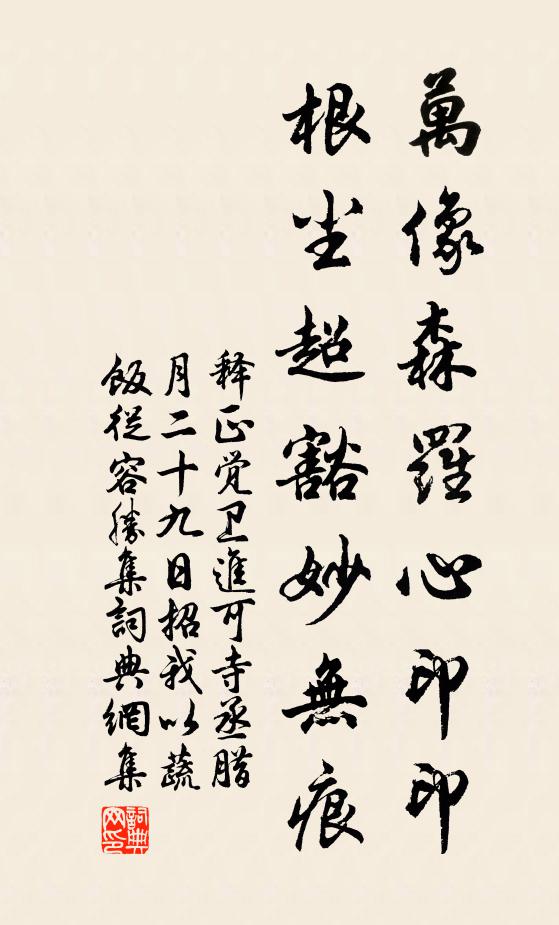 萬像森羅心印印
根尘超豁妙無痕
释正觉卫進可寺丞腊
月二十九日招我以蔬
飯從容勝集詞典網集
詞典网印